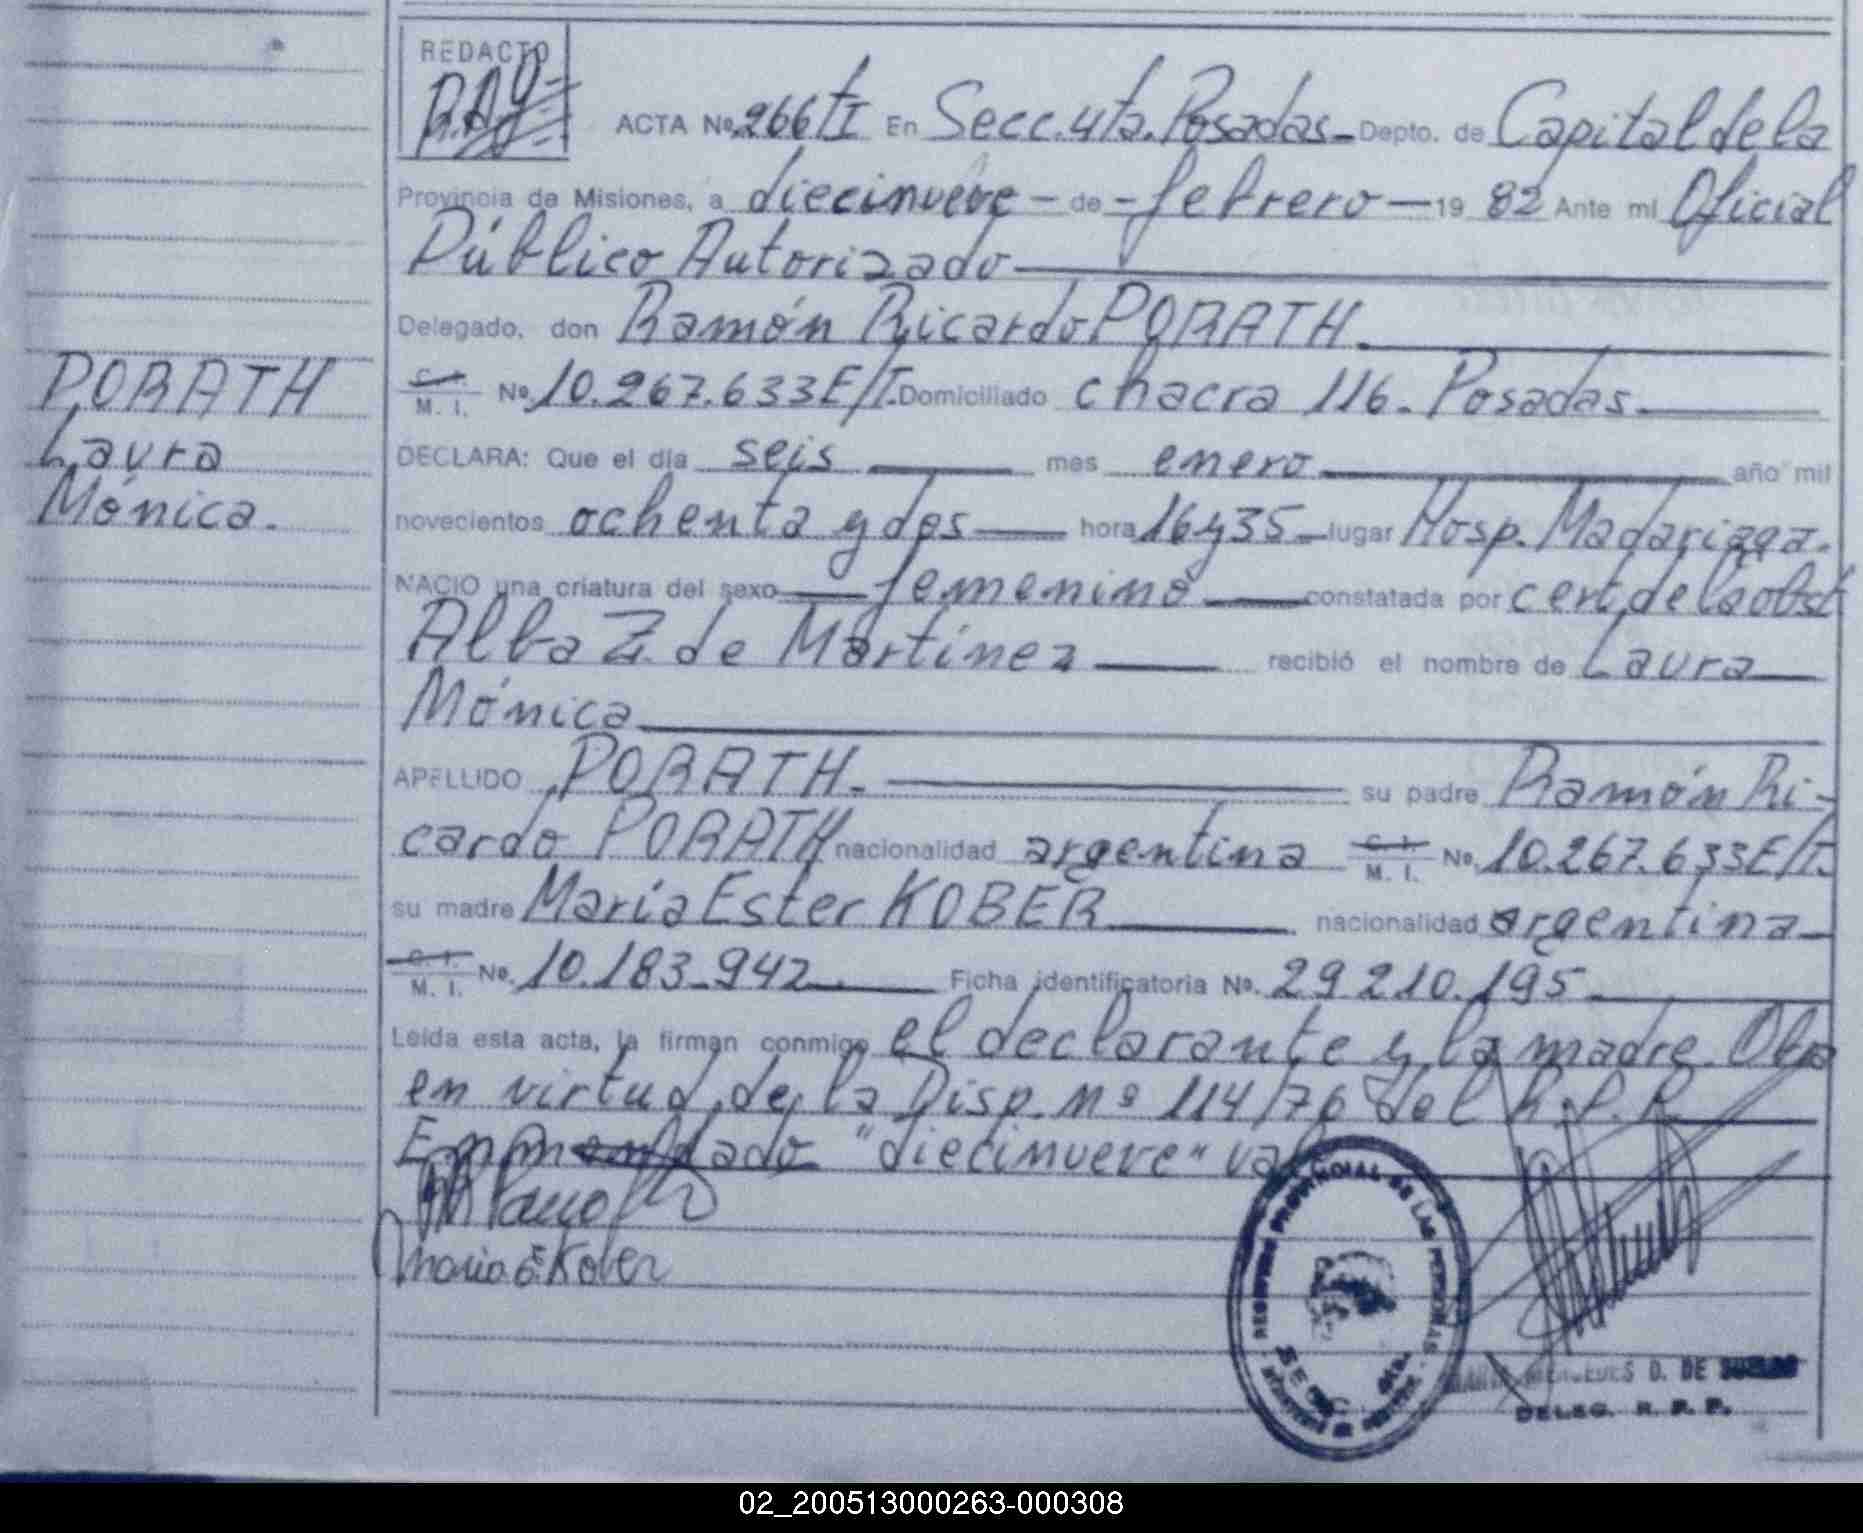 REDACTO
ACTA Nº 266 tI En Secc. 4ta. Posadas Depto. de Capital de la
Provincia de Misiones, a diecinueve - de - febrero - 19 82 Ante mi Oficial
Público Autorizado
Delegado, don Ramón Ricardo PORATH.
C. I. M. I. Nº 10.267.633 E/T. Domiciliado chacra 116. Posadas.
DECLARA: Que el día seis mes enero año mil
novecientos ochenta y dos hora 16 y 35 lugar Hosp. Madariaga.
NACIO una criatura del sexo femenino constatada por cert. de la obst
Alba Z. de Martínez recibió el nombre de Laura
Mónica
APELLIDO PORATH. su padre Ramón Ri-
cardo PORATH nacionalidad argentina C. I. M. I. Nº 10.267.633 E/T.
su madre María Ester KOBER nacionalidad argentina
C. I. M. I. Nº 10.183.942 Ficha identificatoria Nº 29 210.195
Leída esta acta, la firman conmigo el declarante y la madre. Obra
en virtud de la Disp. Nº 114/76 del R. P. P.
Enmendado "diecinueve" vale
Maria E. Kober
PORATH
Laura
Mónica.
REGISTRO PROVINCIAL DE LAS PERSONAS
MERCEDES D. DE
DELEG. R. P. P.
02_200513000263-000308